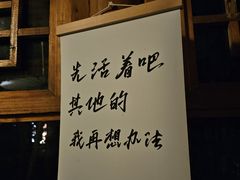 先活着吧
其他的
我再想办法